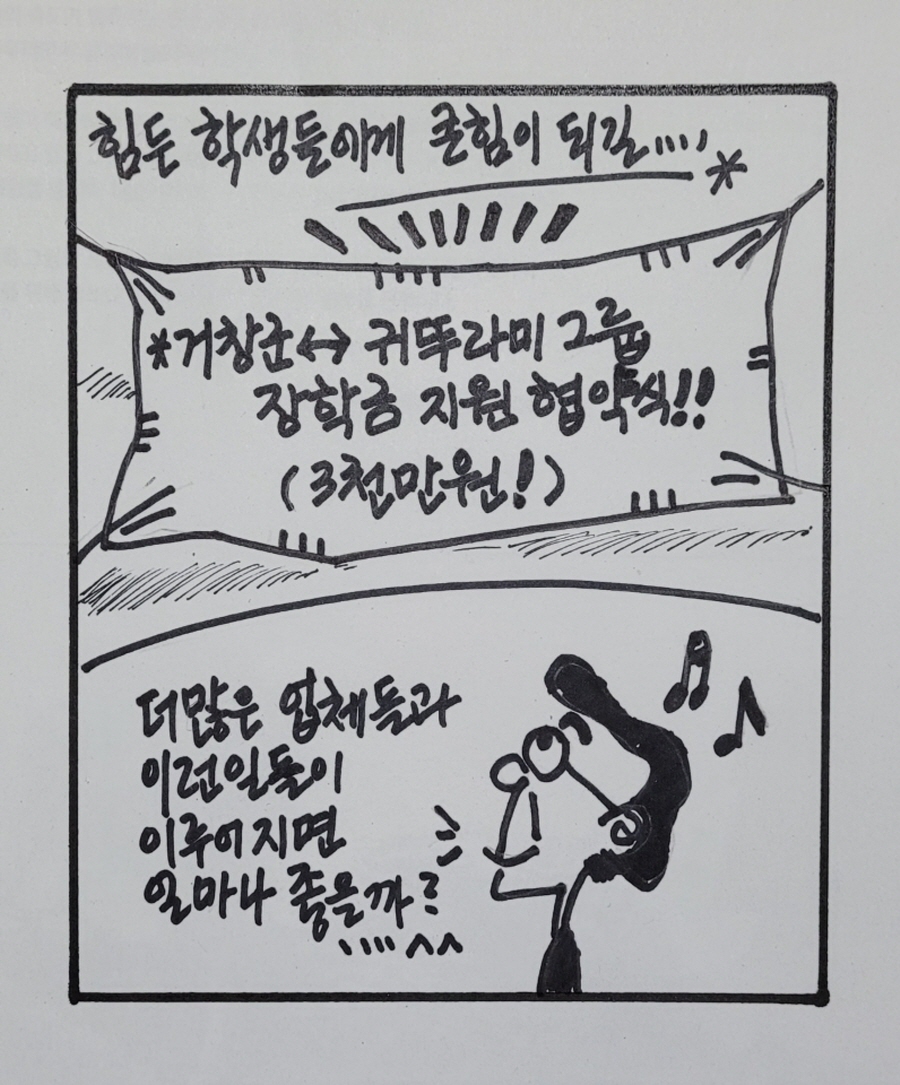 힘든 학생들에게 큰힘이 되길....,
*
*거창군↔귀뚜라미 그룹
장학금 지원 협약식!!
(3천만원!)
더많은 업체들과
이런일들이
이루어지면
얼마나 좋을까?
....^^